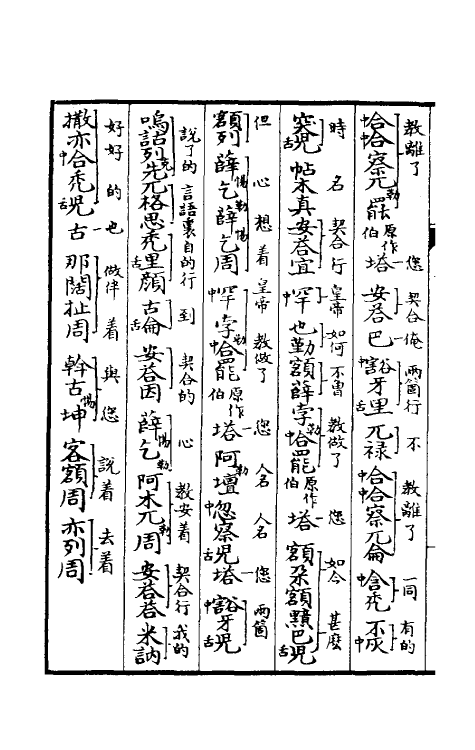 教離了 您 契合俺 兩箇行 不 教離了 一同 有的
恰中恰察兀勒罷原作伯塔 安荅巴 中豁牙里舌 兀祿 恰中恰察兀侖 中哈禿 不中灰
時 名 契合行 皇帝 如何 不曾 教做了 您 如今 甚麽
突兒舌 帖木真安荅宜 中罕 也勤額薛孛勒恰罷原作伯塔 額朵額黯巴兒舌
但 心 想着 皇帝 教做了 您 人名 人名 您 兩箇
額列 薛惕乞勒薛惕乞周 中罕 孛勒恰罷原作伯塔 阿勒壇 中忽察兒舌塔 中豁牙兒舌
說了的 言語裏自的行 到 契合的 心 教安着 契合行 我的
嗚詁列克先兀格思禿里顏 古舌侖 安荅因 薛惕乞勒 阿木兀勒周 安荅荅 米訥
好好的也 做伴着 與您 說着 去着
撒亦中恰禿兒舌古 那闊扯周 斡古惕坤 客額周 亦列周